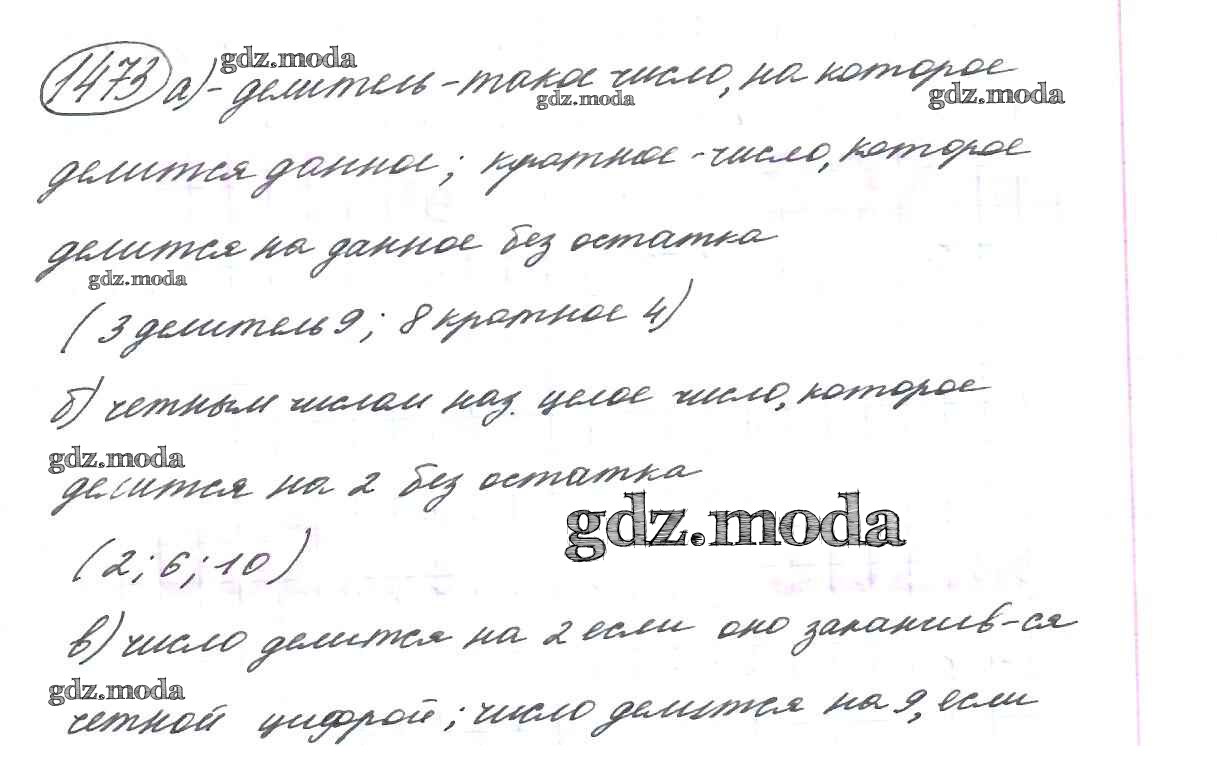 1473 а)- делитель - такое число, на которое
делится данное; кратное - число, которое
делится на данное без остатка
(3 делитель 9; 8 кратное 4)
б) четным числом наз. целое число, которое
делится на 2 без остатка
(2; 6; 10)
в) число делится на 2 если оно заканчив-ся
четной цифрой; число делится на 9, если
gdz.moda
gdz.moda
gdz.moda
gdz.moda
gdz.moda
gdz.moda
gdz.moda